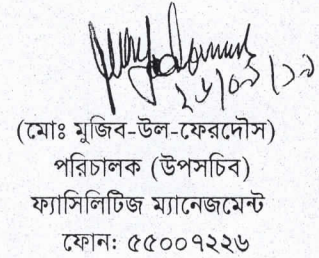 ২৬/০৩/১৯
(মোঃ মুজিব-উল-ফেরদৌস)
পরিচালক (উপসচিব)
ফ্যাসিলিটিজ ম্যানেজমেন্ট
ফোন: ৫৫০০৭২২৬